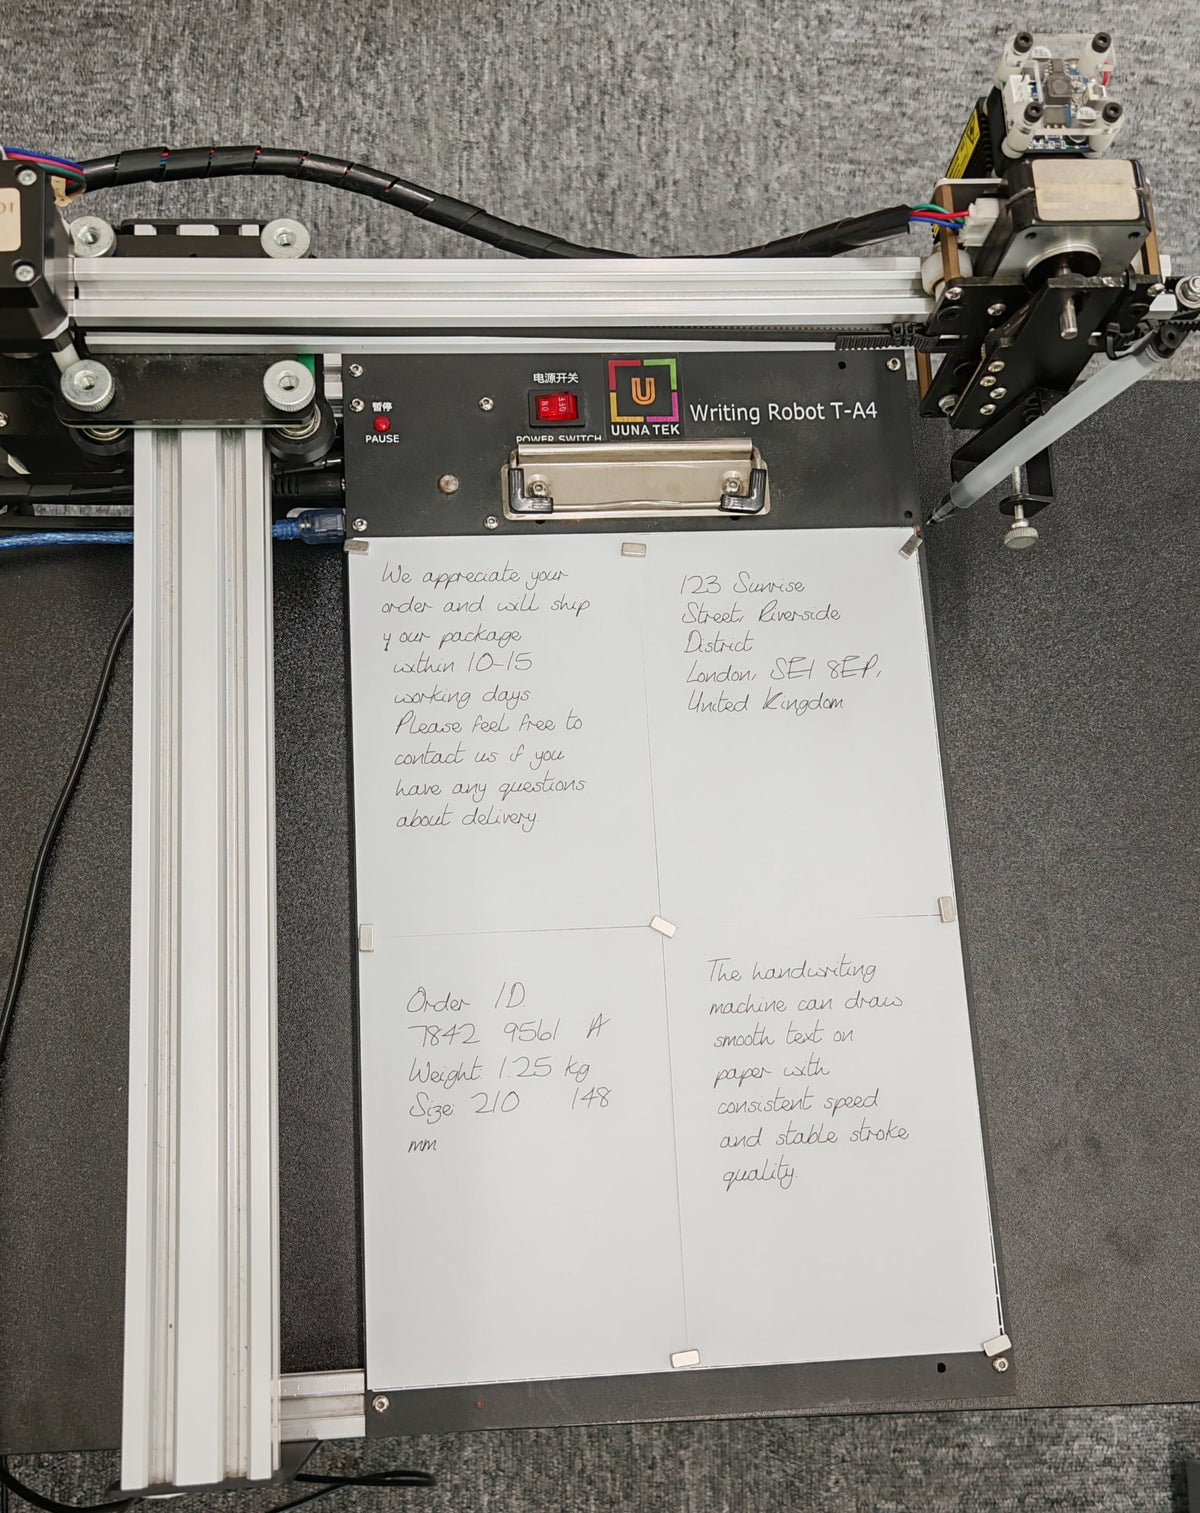 电源开关
暂停
ON OFF
U
PAUSE
POWER SWITCH
UUNATEK
Writing Robot T-A4
We appreciate your
order and will ship
your package
within 10-15
working days.
Please feel free to
contact us if you
have any questions
about delivery.
123 Sunrise
Street, Riverside
District
London, SE1 8EP,
United Kingdom
Order ID
7842 9561 A
Weight: 1.25 kg
Size: 210 148
mm
The handwriting
machine can draw
smooth text on
paper with
consistent speed
and stable stroke
quality.